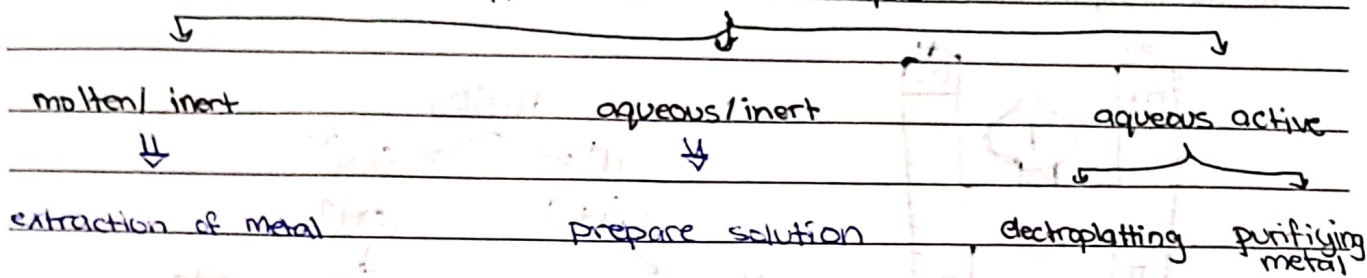 molten/ inert aqueous/inert aqueous active
extraction of metal prepare solution electroplatting purifiying
metal